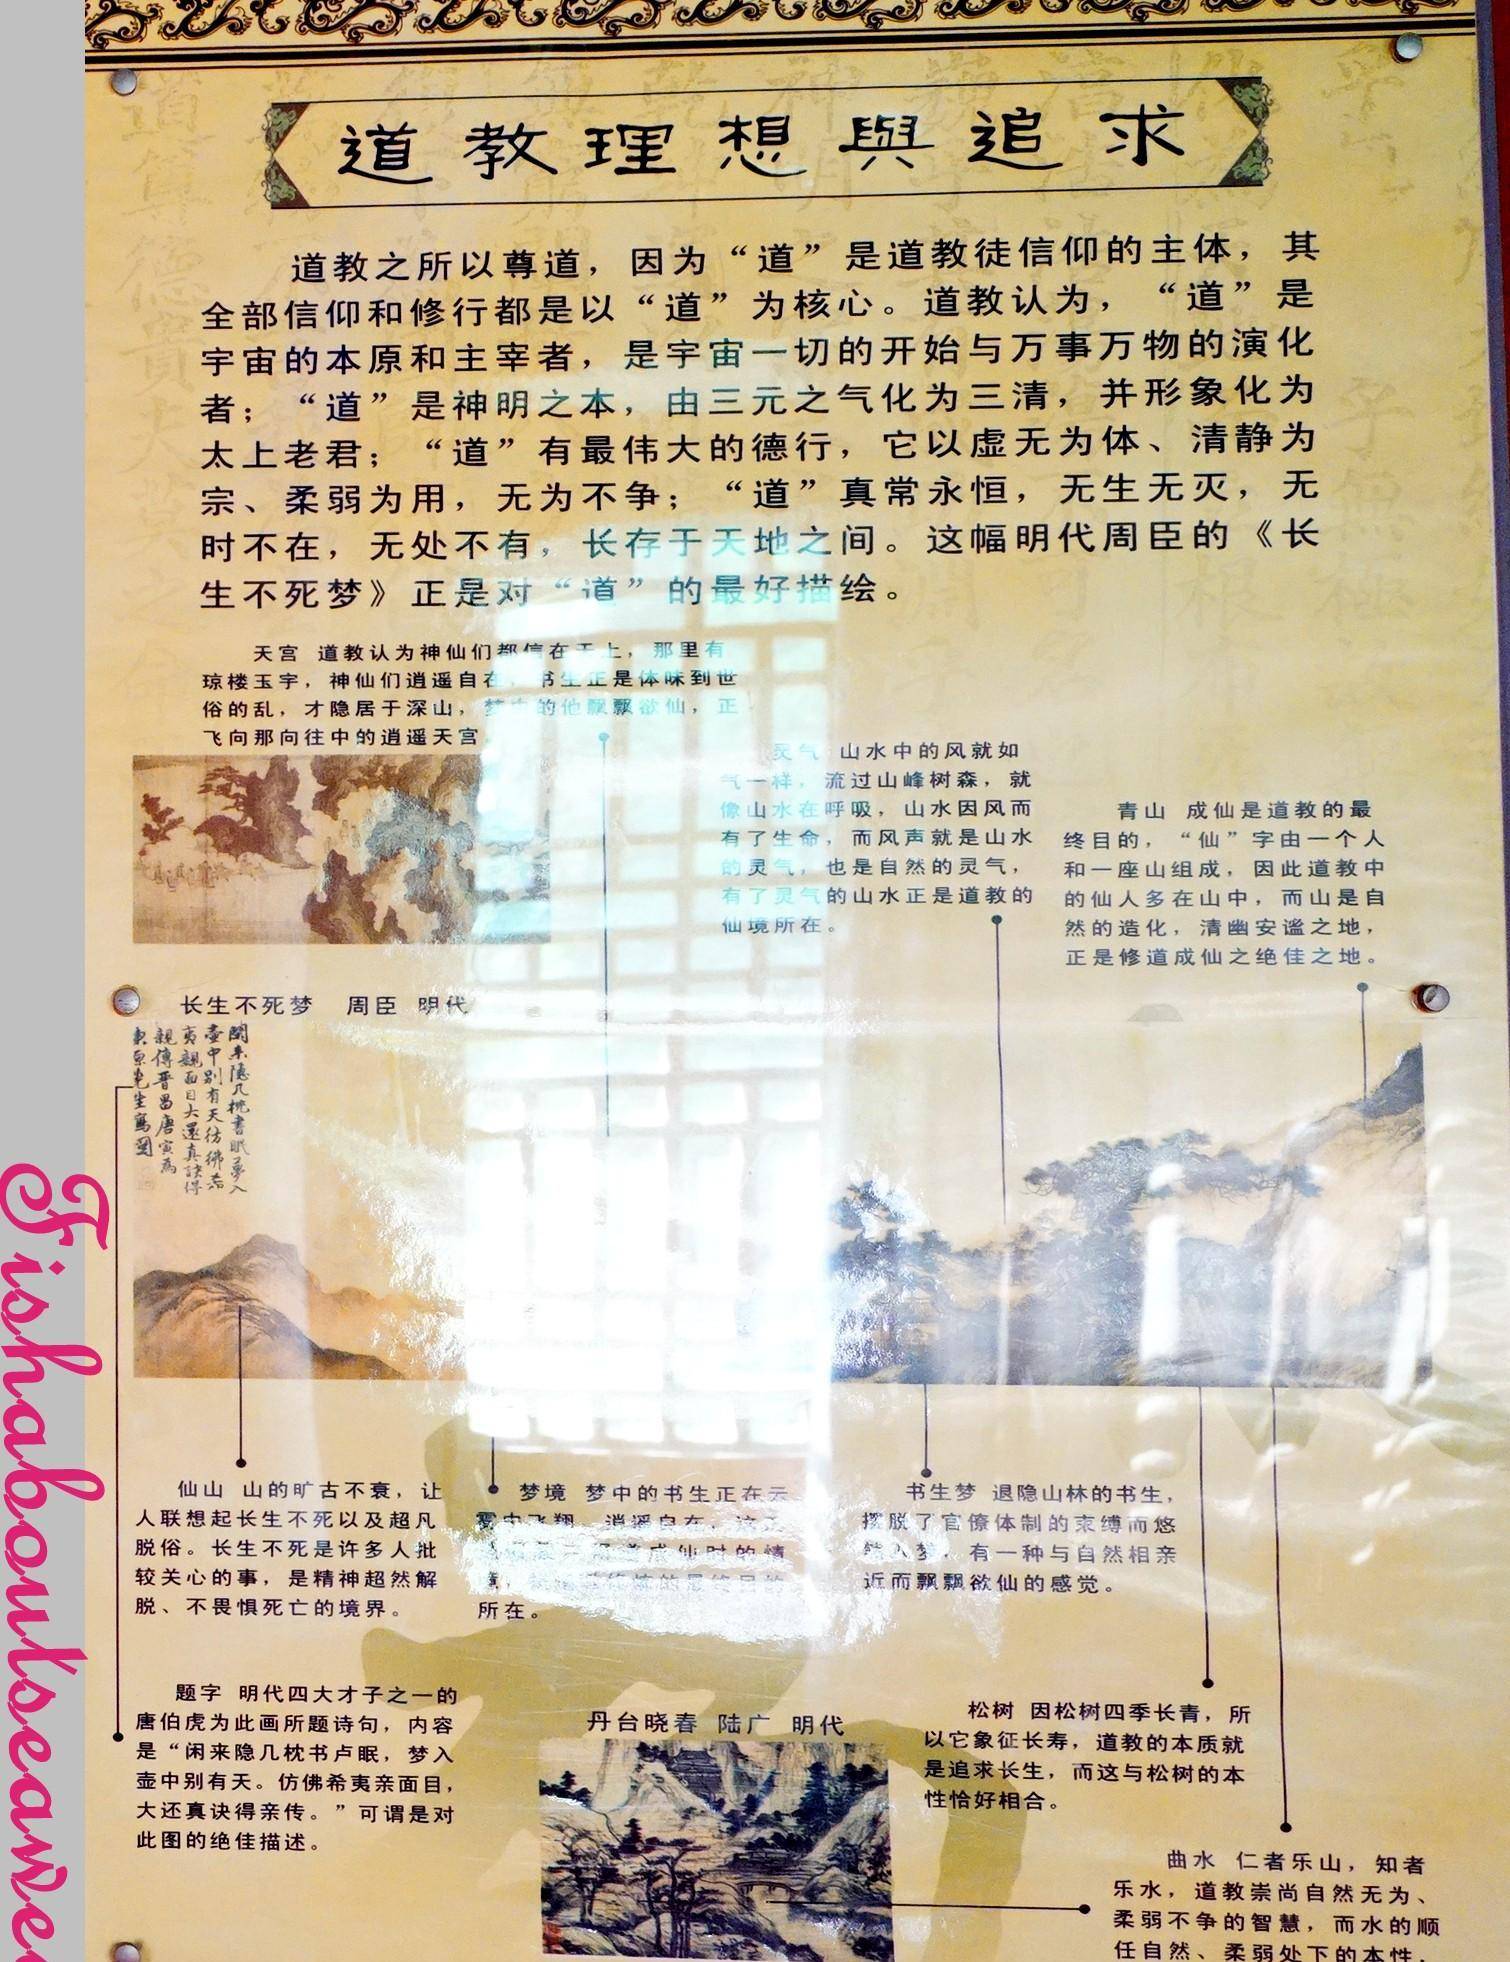 道教理想與追求
道教之所以尊道，因为“道”是道教徒信仰的主体，其
全部信仰和修行都是以“道”为核心。道教认为，“道”是
宇宙的本原和主宰者，是宇宙一切的开始与万事万物的演化
者；“道”是神明之本，由三元之气化为三清，并形象化为
太上老君；“道”有最伟大的德行，它以虚无为体、清静为
宗、柔弱为用，无为不争；“道”真常永恒，无生无灭，无
时不在，无处不有，长存于天地之间。这幅明代周臣的《长
生不死梦》正是对“道”的最好描绘。
天宫 道教认为神仙们都信在天上，那里有
琼楼玉宇，神仙们逍遥自在，书生正是体味到世
俗的乱，才隐居于深山，梦中的他飘飘欲仙，正
飞向那向往中的逍遥天宫
灵气 山水中的风就如
气一样，流过山峰树森，就
像山水在呼吸，山水因风而
有了生命，而风声就是山水
的灵气，也是自然的灵气，
有了灵气的山水正是道教的
仙境所在。
青山 成仙是道教的最
终目的，“仙”字由一个人
和一座山组成，因此道教中
的仙人多在山中，而山是自
然的造化，清幽安谧之地，
正是修道成仙之绝佳之地。
长生不死梦 周臣 明代
閒来隐几枕書眠夢入
壶中别有天彷彿希
夷親面目大還真訣得
親傳晋昌唐寅為
東原先生寫圖
仙山 山的旷古不衰，让
人联想起长生不死以及超凡
脱俗。长生不死是许多人批
较关心的事，是精神超然解
脱、不畏惧死亡的境界。
梦境 梦中的书生正在云
雾中飞翔，逍遥自在，这
成仙时的情
的最终目的
所在。
书生梦 退隐山林的书生，
摆脱了官僚体制的束缚而悠
然入梦，有一种与自然相亲
近而飘飘欲仙的感觉。
题字 明代四大才子之一的
唐伯虎为此画所题诗句，内容
是“闲来隐几枕书卢眠，梦入
壶中别有天。仿佛希夷亲面目，
大还真诀得亲传。”可谓是对
此图的绝佳描述。
丹台晓春 陆广 明代
松树 因松树四季长青，所
以它象征长寿，道教的本质就
是追求长生，而这与松树的本
性恰好相合。
曲水 仁者乐山，知者
乐水，道教崇尚自然无为、
柔弱不争的智慧，而水的顺
任自然、柔弱处下的本性，
Fishaboutseawe